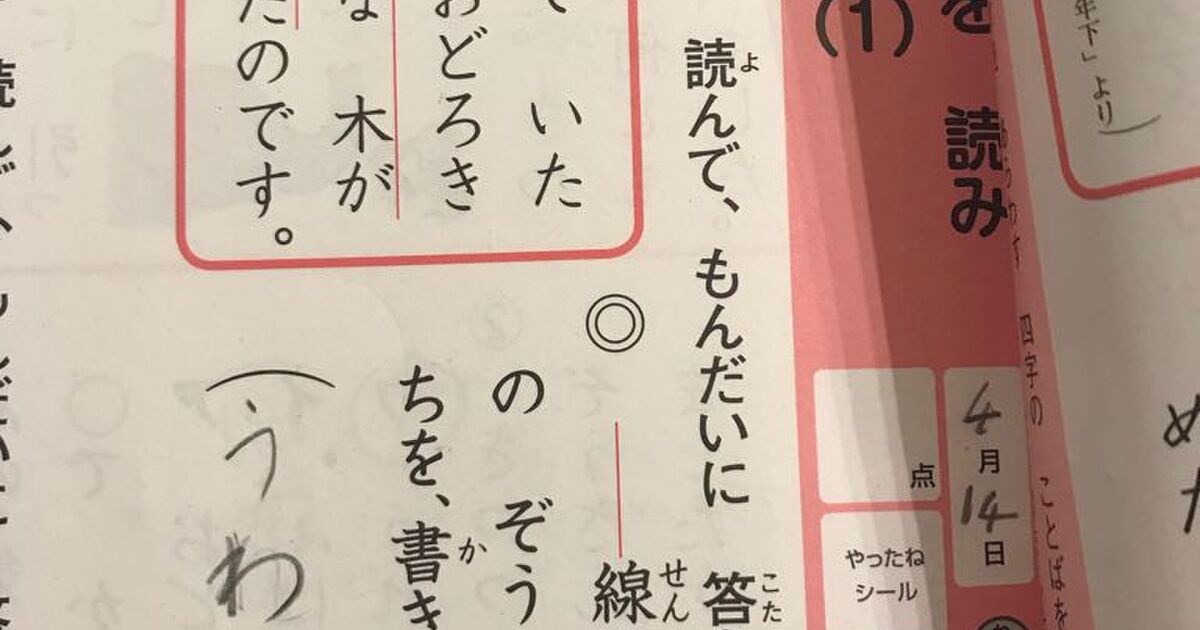 年下」より
四字の ことばを
めた
を 読み
(1)
4月14日
点
やったね
シール
読んで、もんだいに 答
よ
こた
◎ ― 線
せん
の ぞう
ちを、書き
か
いた
おどろき
な 木が
たのです。
(うわ